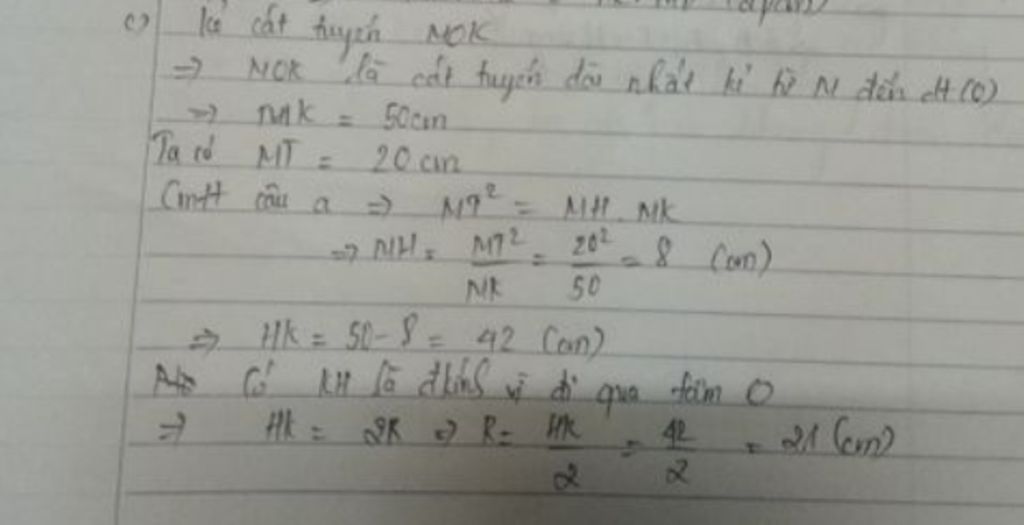 c) Kẻ cát tuyến MOK
⇒ MOK là cát tuyến dài nhất kẻ từ M đến (O)
⇒ MK = 50cm
Ta có MT = 20 cm
CmH câu a ⇒ MT² = MH. MK
⇒ MH = MT²/MK = 20²/50 = 8 (cm)
⇒ HK = 50 - 8 = 42 (cm)
Có KH là đkính vì đi qua tâm O
⇒ HK = 2R ⇒ R = HK/2 = 42/2 = 21 (cm)